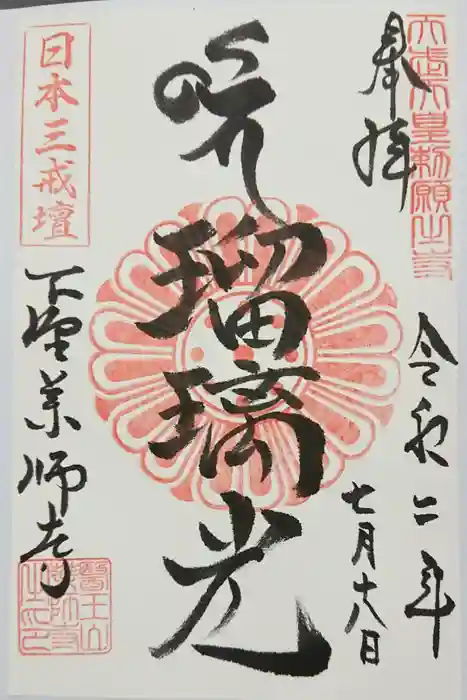 天武天皇勅願之寺
奉拝
令和二年
七月十八日
瑠璃光
日本三戒壇
下野薬師寺